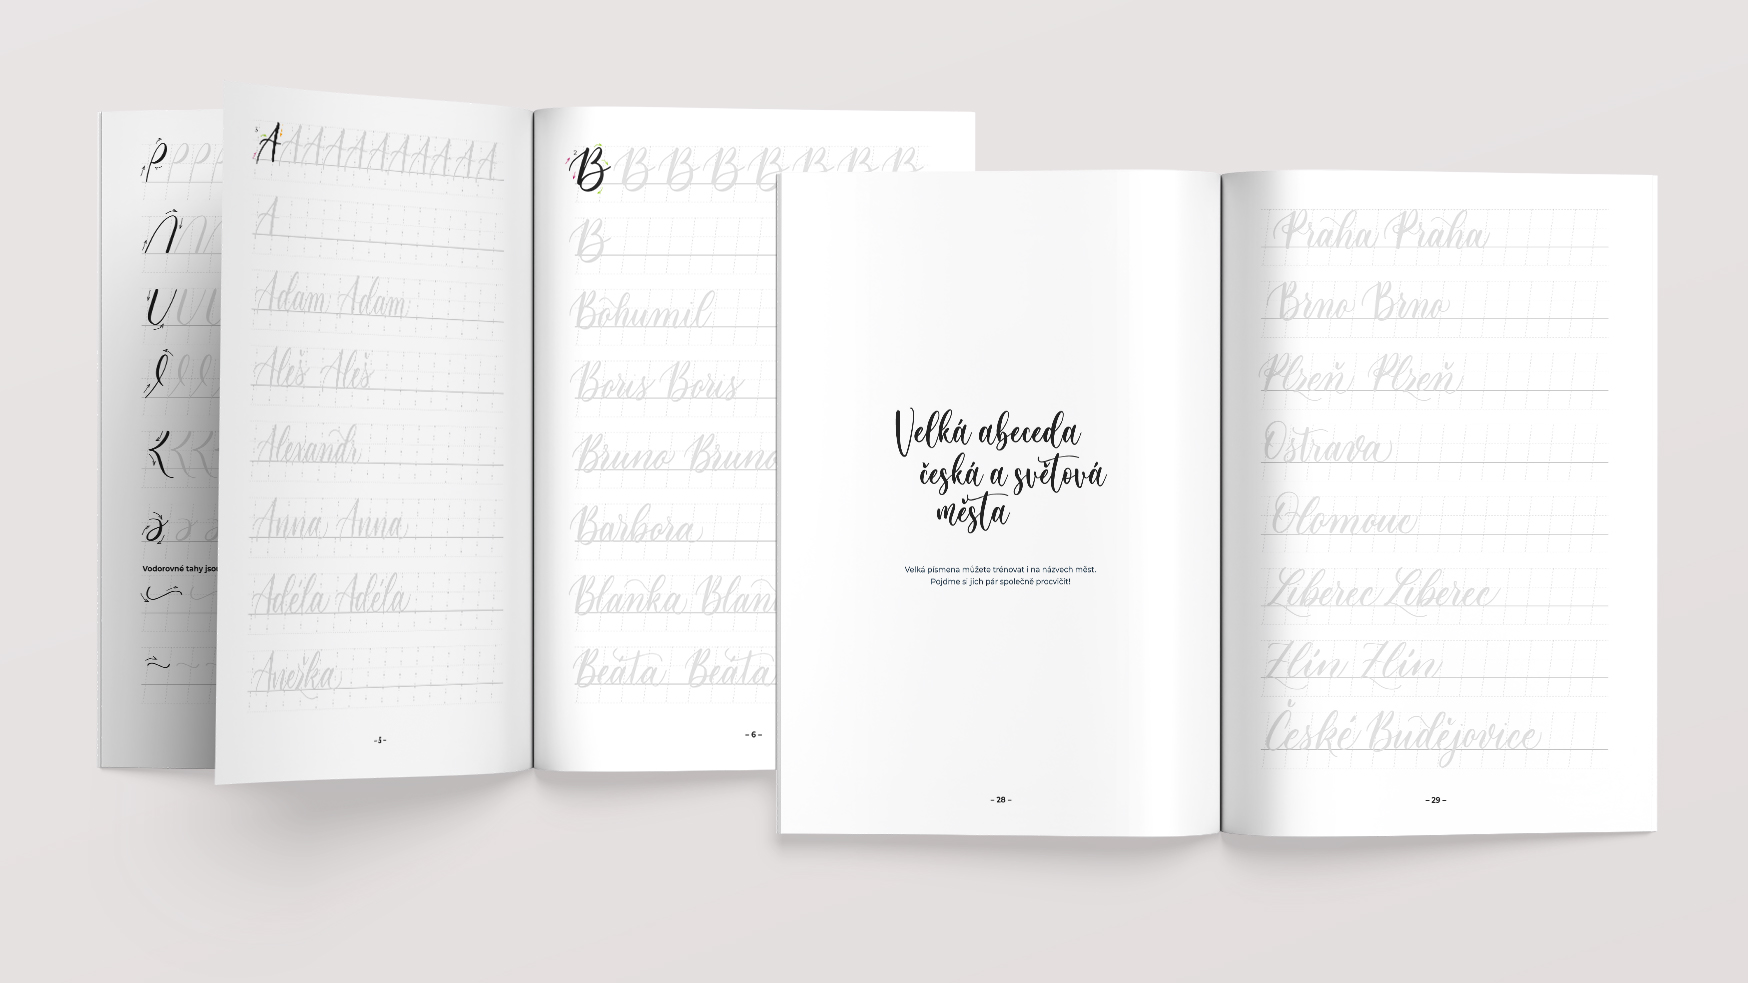 Vodorovné tahy
A A A A A A A A A A
A
Adam Adam
Aleš Aleš
Alexandr
Anna Anna
Adéla Adéla
Anežka
– 5 –
B B B B B B B B
B
Bohumil
Boris Boris
Bruno Bruno
Barbora
Blanka Blan
Beáta Beáta
– 6 –
Velká abeceda
česká a světová
města
Velká písmena můžete trénovat i na názvech měst.
Pojdme si jich pár společně procvičit!
– 28 –
Praha Praha
Brno Brno
Plzeň Plzeň
Ostrava
Olomouc
Liberec Liberec
Zlín Zlín
České Budějovice
– 29 –